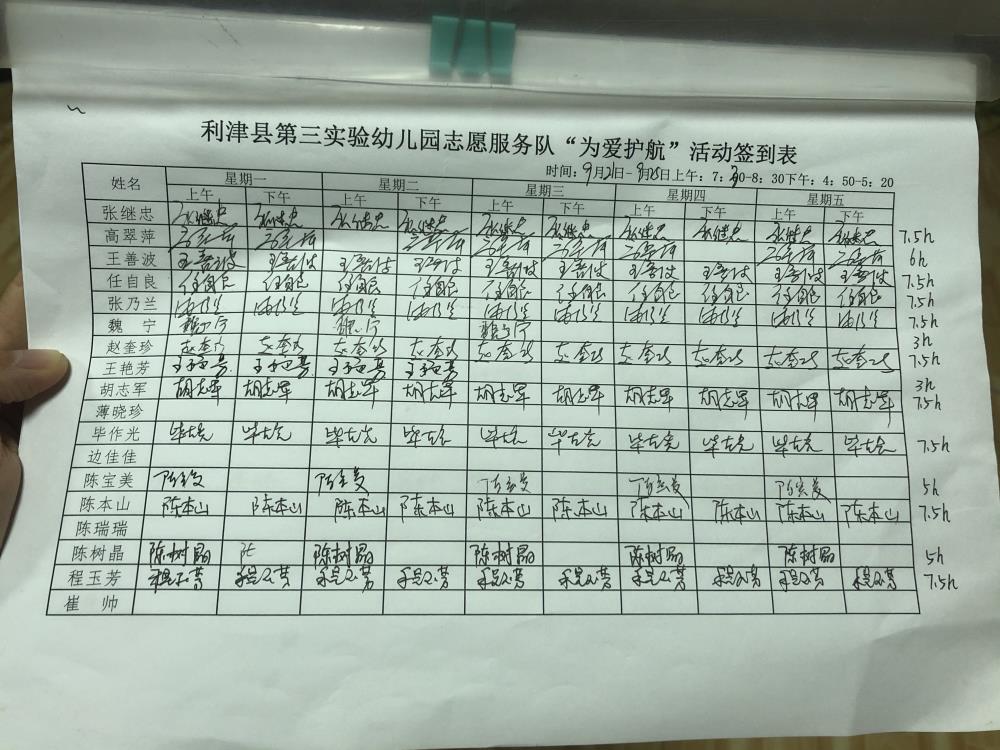 利津县第三实验幼儿园志愿服务队“为爱护航”活动签到表
时间：9月21日-9月25日上午：7：30-8：30下午：4：50-5：20
姓名 星期一 星期二 星期三 星期四 星期五
上午 下午 上午 下午 上午 下午 上午 下午 上午 下午
张继忠 张继忠 张继忠 张继忠 张继忠 张继忠 张继忠 张继忠 张继忠 张继忠 张继忠 7.5h
高翠萍 6h
王善波 王善波 王善波 王善波 王善波 王善波 王善波 王善波 王善波 王善波 王善波 7.5h
任自良 任自良 任自良 任自良 任自良 任自良 任自良 任自良 任自良 任自良 任自良 7.5h
张乃兰 7.5h
魏 宁 魏宁 魏宁 魏宁 3h
赵奎珍 赵奎珍 赵奎珍 赵奎珍 赵奎珍 赵奎珍 赵奎珍 赵奎珍 赵奎珍 赵奎珍 赵奎珍 7.5h
王艳芳 王艳芳 王艳芳 王艳芳 王艳芳 3h
胡志军 胡志军 胡志军 胡志军 胡志军 胡志军 胡志军 胡志军 胡志军 胡志军 胡志军 7.5h
薄晓珍
毕作光 毕作光 毕作光 毕作光 毕作光 毕作光 毕作光 毕作光 毕作光 毕作光 毕作光 7.5h
边佳佳
陈宝美 陈宝美 陈宝美 陈宝美 陈宝美 陈宝美 5h
陈本山 陈本山 陈本山 陈本山 陈本山 陈本山 陈本山 陈本山 陈本山 陈本山 陈本山 7.5h
陈瑞瑞
陈树晶 陈树晶 陈树晶 陈树晶 陈树晶 陈树晶 5h
程玉芳 程玉芳 程玉芳 程玉芳 程玉芳 程玉芳 程玉芳 程玉芳 程玉芳 程玉芳 程玉芳 7.5h
崔 帅